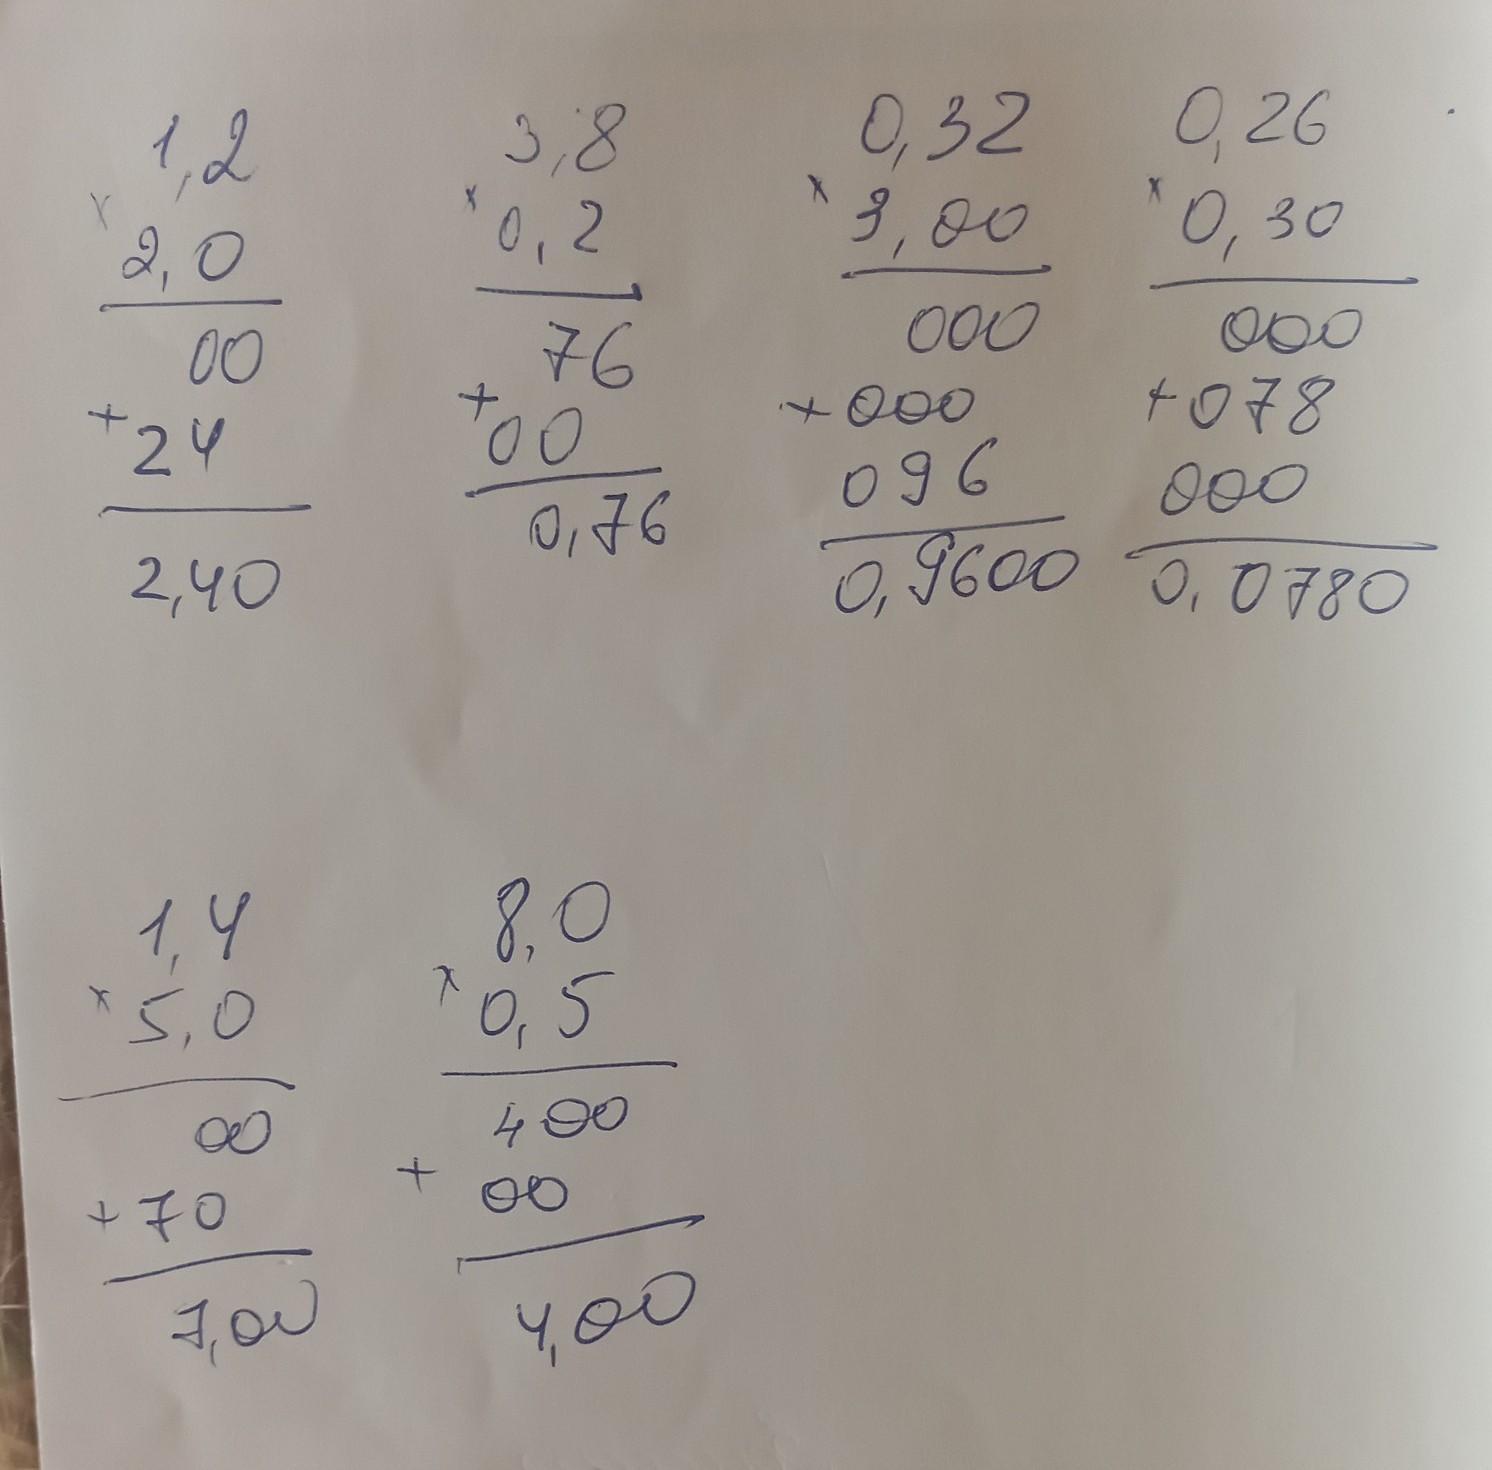 1,2
x
2,0
00
+
24
2,40
3,8
x
0,2
76
+
00
0,76
0,32
x
3,00
000
+000
096
0,9600
0,26
x
0,30
000
+078
000
0,0780
1,4
x
5,0
00
+70
7,00
8,0
x
0,5
400
+
00
4,00